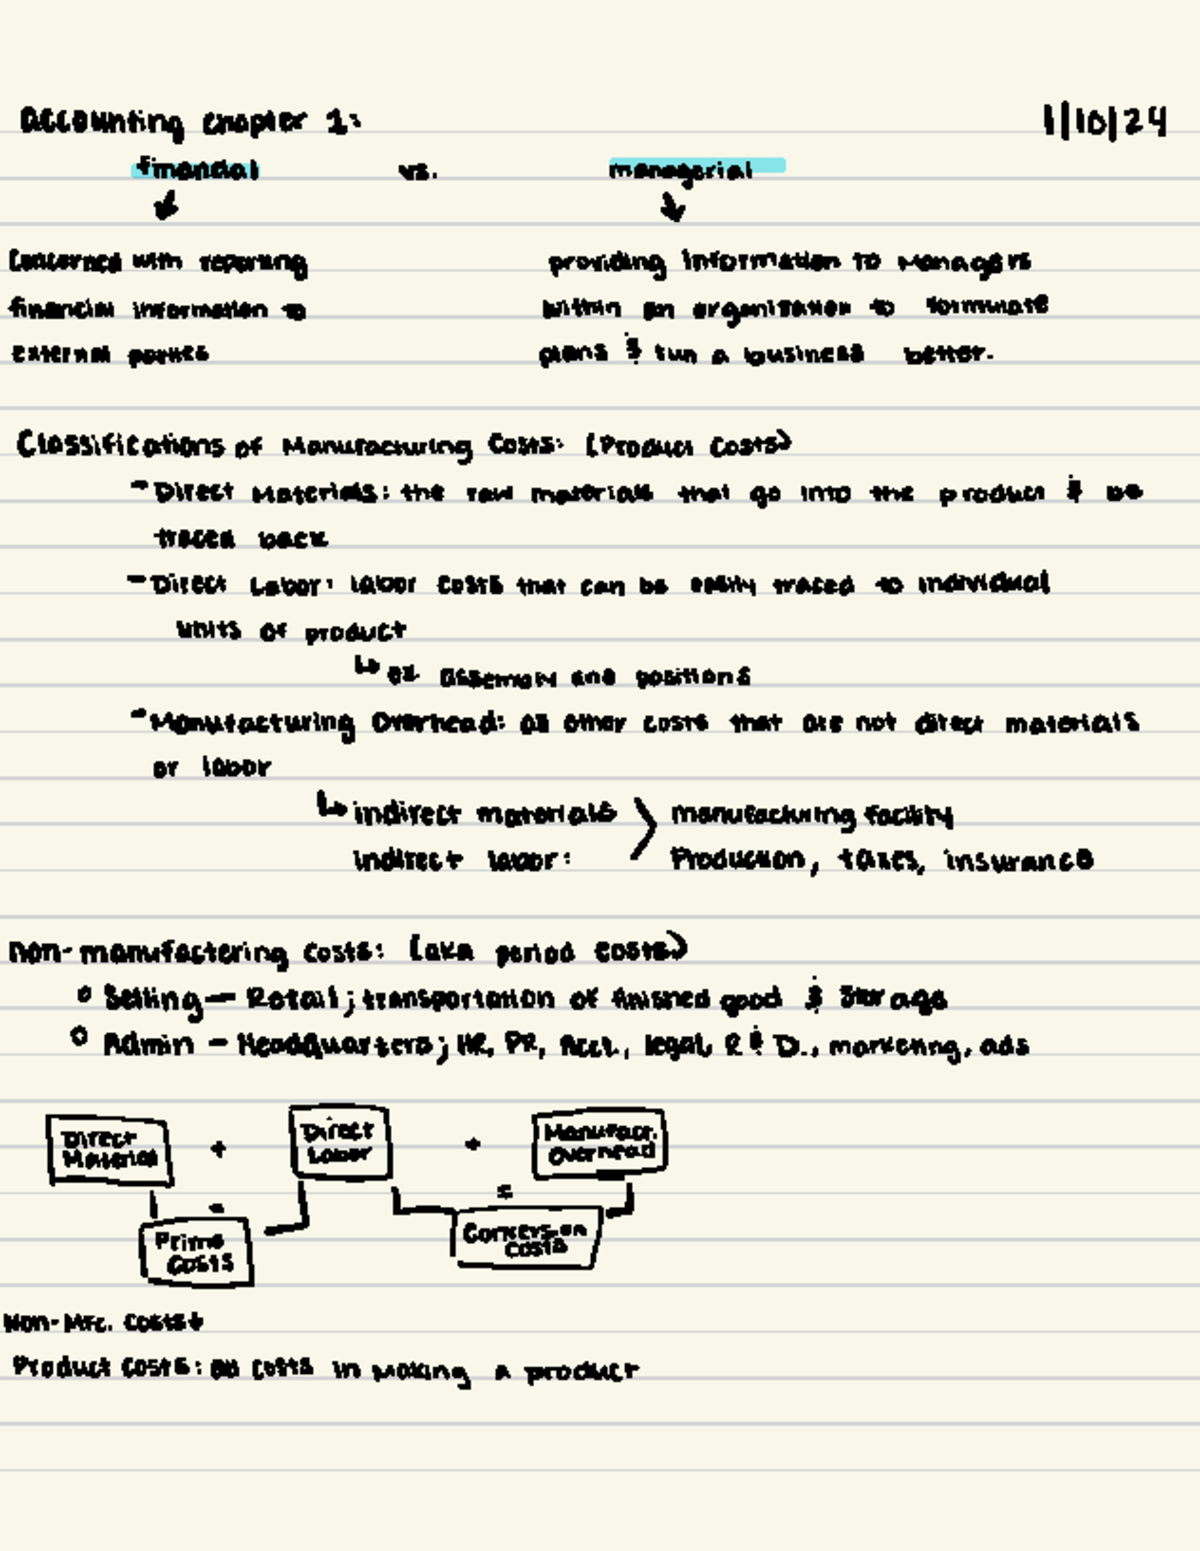 Accounting Chapter 1: 1/10/24
financial vs. managerial
Concerned with reporting providing information to managers
financial information to within an organization to formulate
external parties plans & run a business better.
Classifications of Manufacturing Costs: (Product Costs)
- Direct Materials: the raw materials that go into the product & be
traced back
- Direct Labor: labor costs that can be easily traced to individual
units of product
↳ ex. assembly and positions
- Manufacturing Overhead: all other costs that are not direct materials
or labor
↳ indirect materials > manufacturing facility
indirect labor: Production, taxes, insurance
non-manufactering costs: (aka period costs)
o Selling — Retail; transportation of finished good & storage
o Admin - Headquarters; HR, PR, Acct., legal, R & D., marketing, ads
Direct Material + Direct Labor + Manufact. Overhead
= =
Prime Costs Conversion Costs
Non-Mfc. Costs↓
Product Costs: all costs in making a product